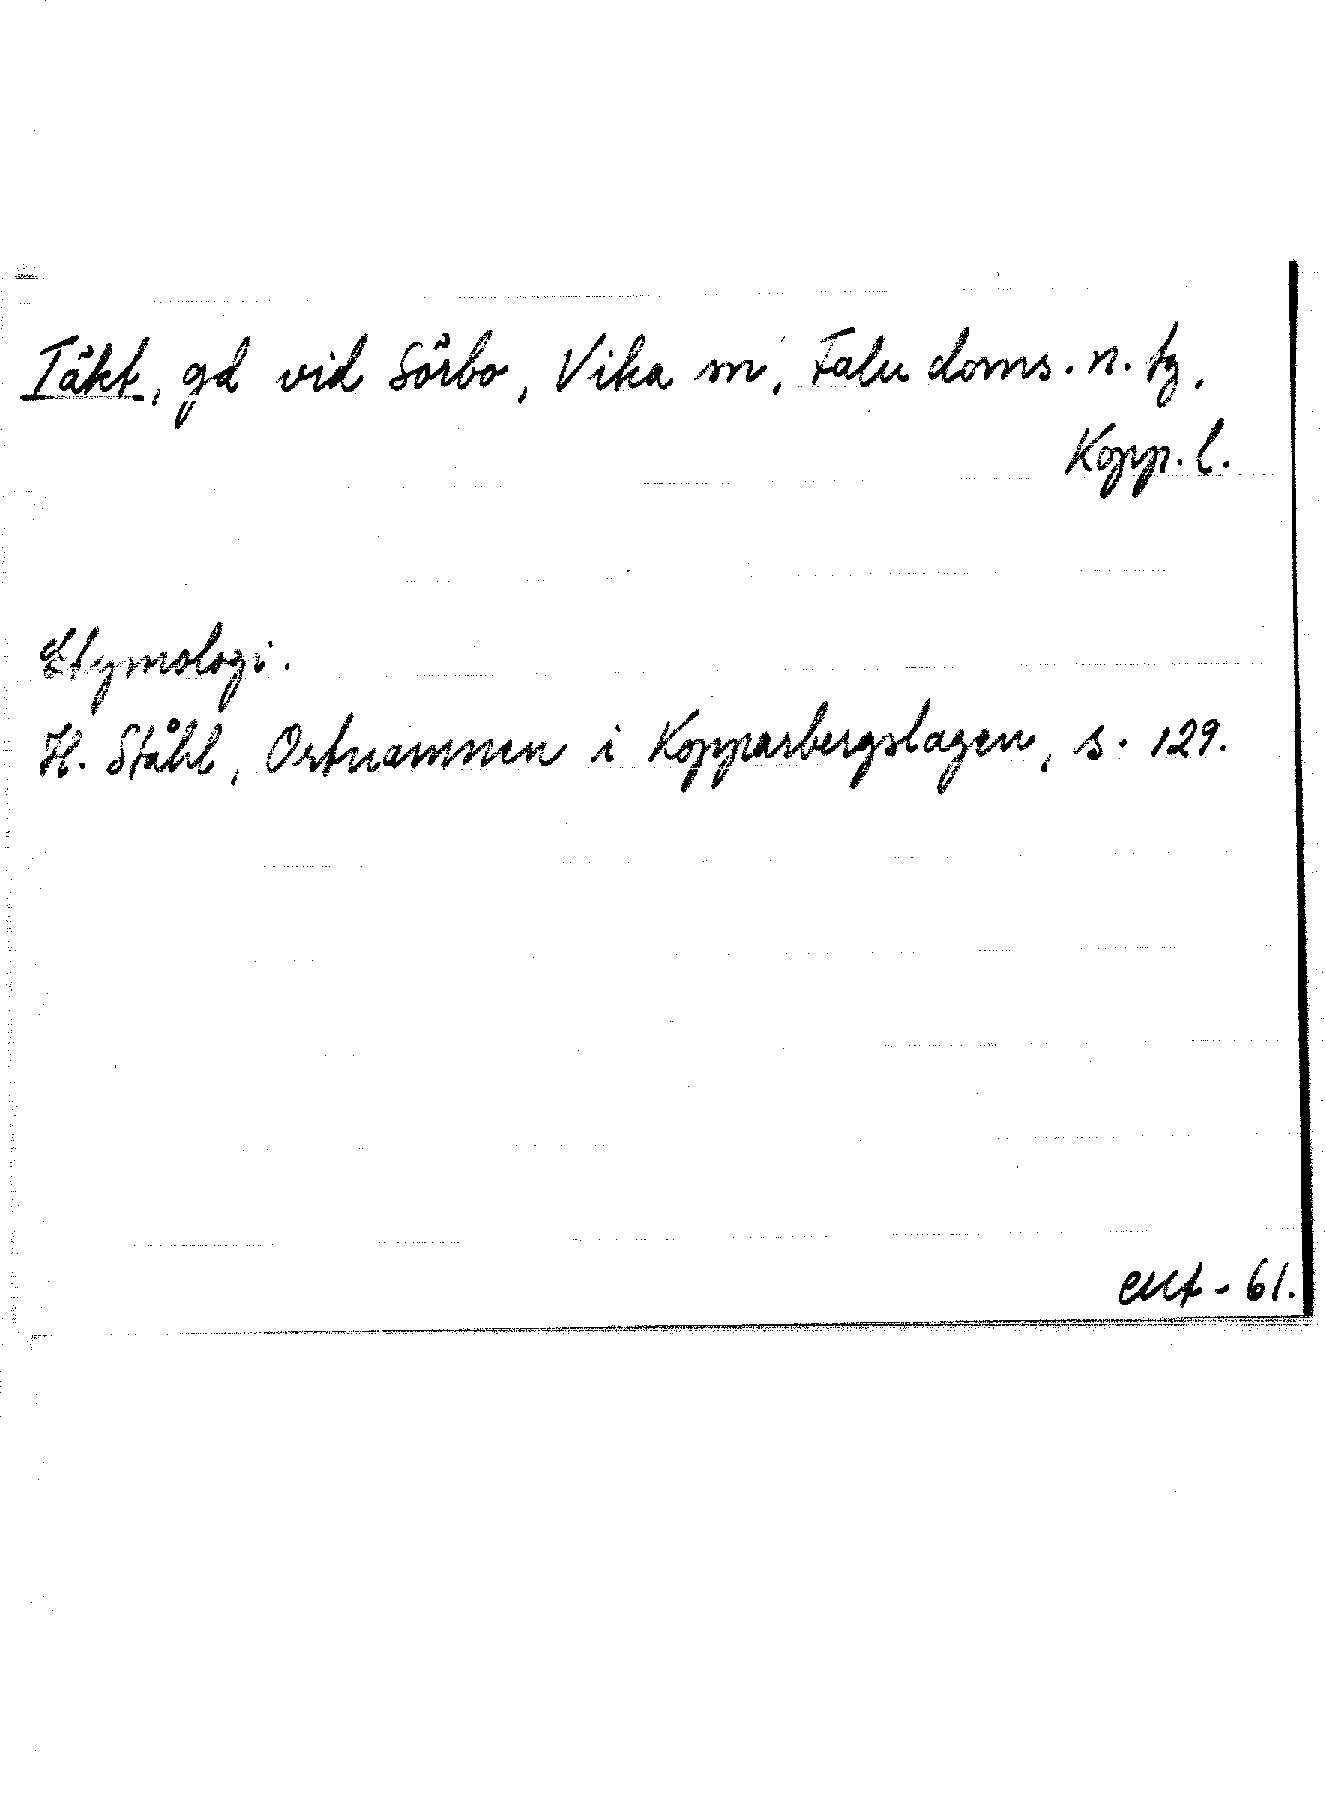 Täkt, gd vid Sörbo, Vika sn, Falu doms. n. tg.
Kopp. l.
Etymologi.
H. Ståhl, Ortnamnen i Kopparbergslagen, s. 129.
- 61.